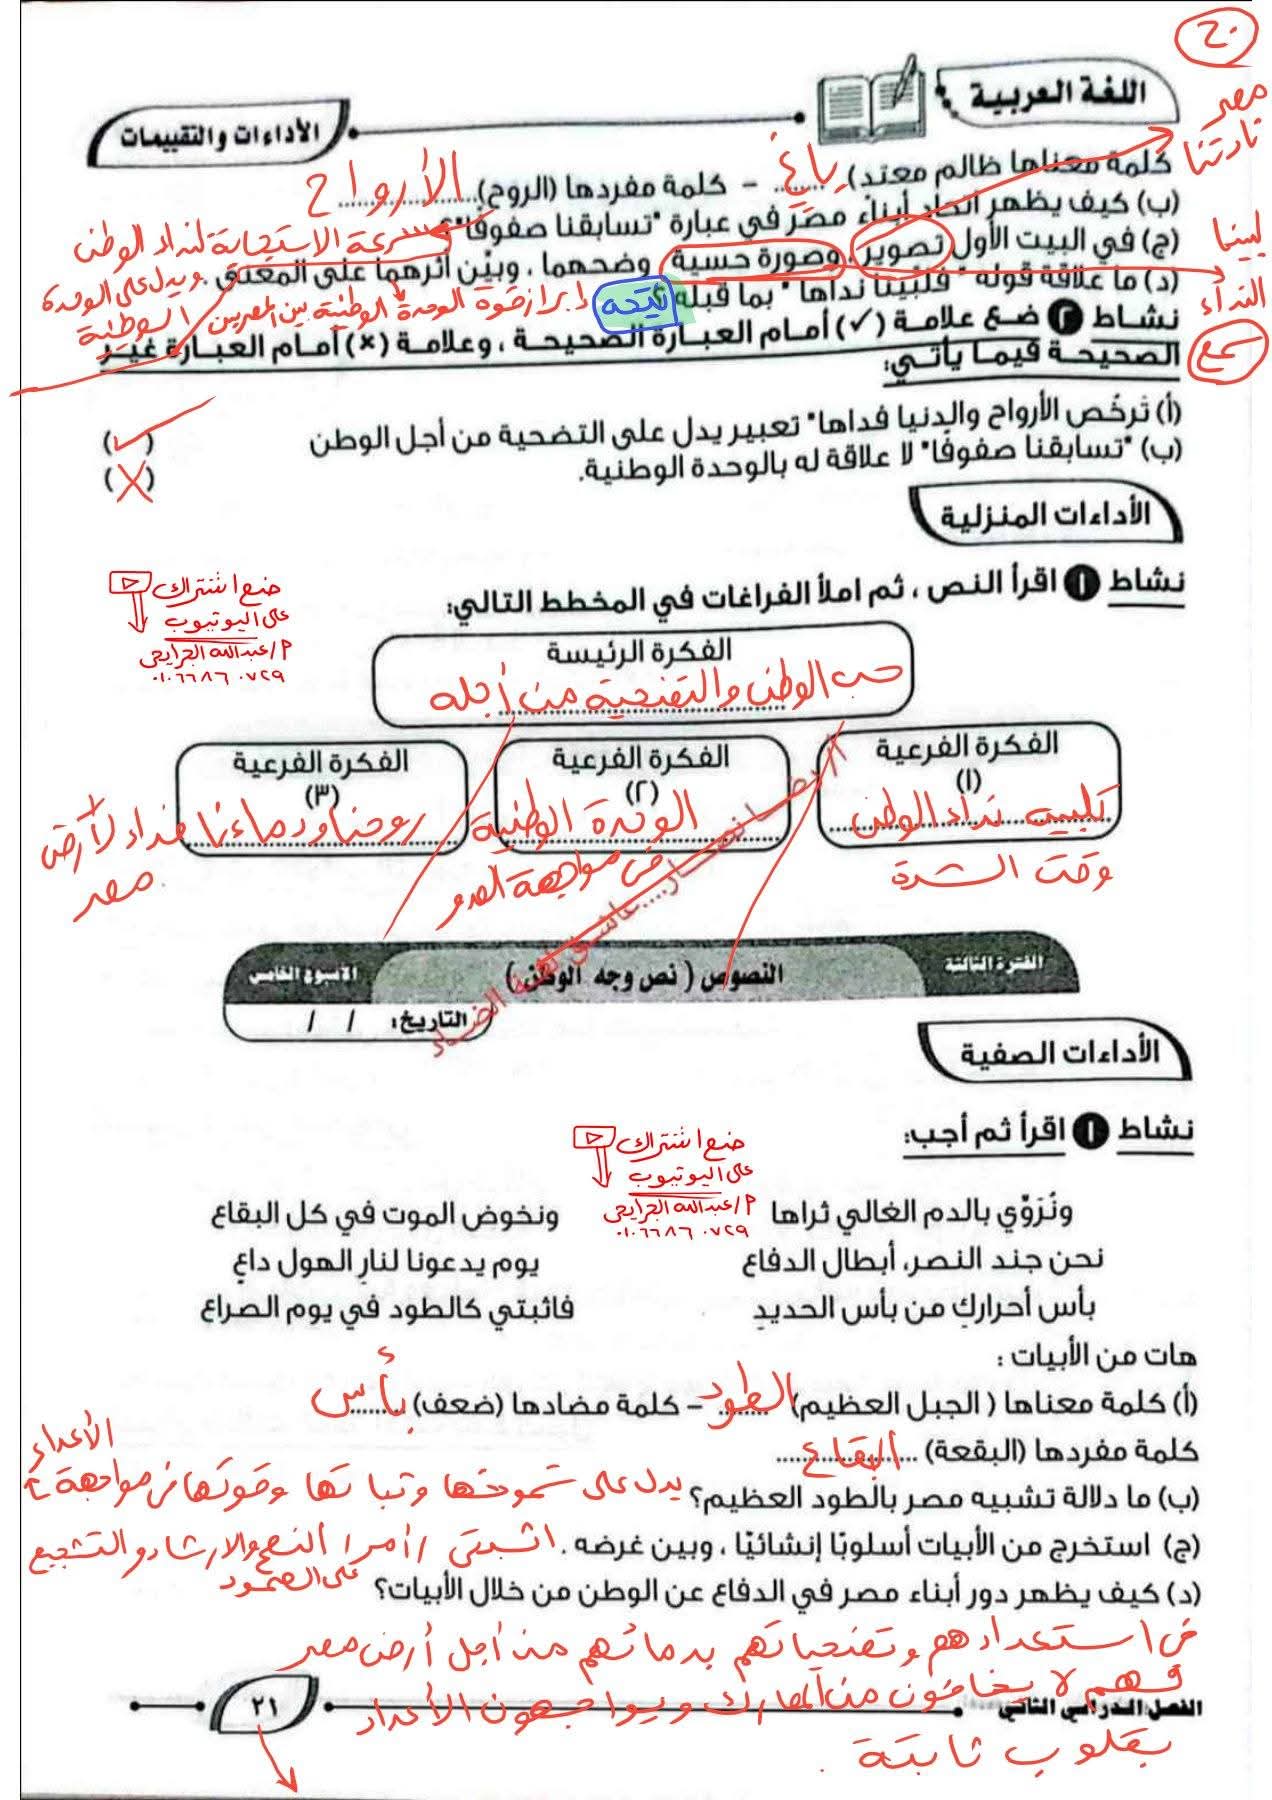 ٢٠
اللغة العربية
الأداءات والتقييمات
مصر
نادتنا
كلمة معناها ظالم معتد) ........ باغٍ - كلمة مفردها (الروح) .................... الأرواح
(ب) كيف يظهر اتحاد أبناء مصر في عبارة "تسابقنا صفوفًا"؟
سرعة الاستجابة لنداء الوطن
ويدل على الوحدة الوطنية
(ج) في البيت الأول تصوير، وصورة حسية وضحهما، وبيّن أثرهما على المعنى.
لبينا
النداء
سمع
إبراز قوة الوحدة الوطنية بين المصريين
(د) ما علاقة قوله "فلبينا نداها" بما قبله؟ نتيجه
نشاط ٢ ضع علامة (✓) أمام العبارة الصحيحة، وعلامة (×) أمام العبارة غير
الصحيحة فيما يأتي:
(أ) تَرخُص الأرواح والدنيا فداها" تعبير يدل على التضحية من أجل الوطن (✓)
(ب) "تسابقنا صفوفًا" لا علاقة له بالوحدة الوطنية. (X)
الأداءات المنزلية
نشاط ١ اقرأ النص، ثم املأ الفراغات في المخطط التالي:
ضع اشتراك
على اليوتيوب
م/عبدالله الجرايحى
٠١٠٦٦٨٦٠٧٢٩
الفكرة الرئيسة
حب الوطن والتضحية من أجله
الفكرة الفرعية
(١)
تلبية نداء الوطن
وقت الشدة
الفكرة الفرعية
(٢)
الوحدة الوطنية
فى مواجهة العدو
الفكرة الفرعية
(٣)
روحنا ودماءنا فداء لأرض
مصر
الفترة الثالثة
النصوص ( نص وجه الوطن )
الأسبوع الخامس
التاريخ: / /
الأداءات الصفية
نشاط ١ اقرأ ثم أجب:
ضع اشتراك
على اليوتيوب
م/عبدالله الجرايحى
٠١٠٦٦٨٦٠٧٢٩
ونُرَوِّي بالدم الغالي ثراها ونخوض الموت في كل البقاع
نحن جند النصر، أبطال الدفاع يوم يدعونا لنارِ الهول داعِ
بأس أحراركِ من بأس الحديدِ فاثبتي كالطود في يوم الصراع
هات من الأبيات :
(أ) كلمة معناها ( الجبل العظيم) ........ الطود - كلمة مضادها (ضعف) ........ بأس
كلمة مفردها (البقعة) .................... البقاع
(ب) ما دلالة تشبيه مصر بالطود العظيم؟ يدل على شموخها وثباتها وقوتها فى مواجهة الأعداء
(ج) استخرج من الأبيات أسلوبًا إنشائيًا، وبين غرضه. اثبتى / أمر / النصح والارشاد والتشجيع
على الصمود
(د) كيف يظهر دور أبناء مصر في الدفاع عن الوطن من خلال الأبيات؟
فى استعدادهم وتضحياتهم بدمائهم من أجل أرض مصر
فهم لا يخافون من المعارك ويواجهون الأعداء
بقلوب ثابتة .
الفصل الدراسي الثاني
٢١